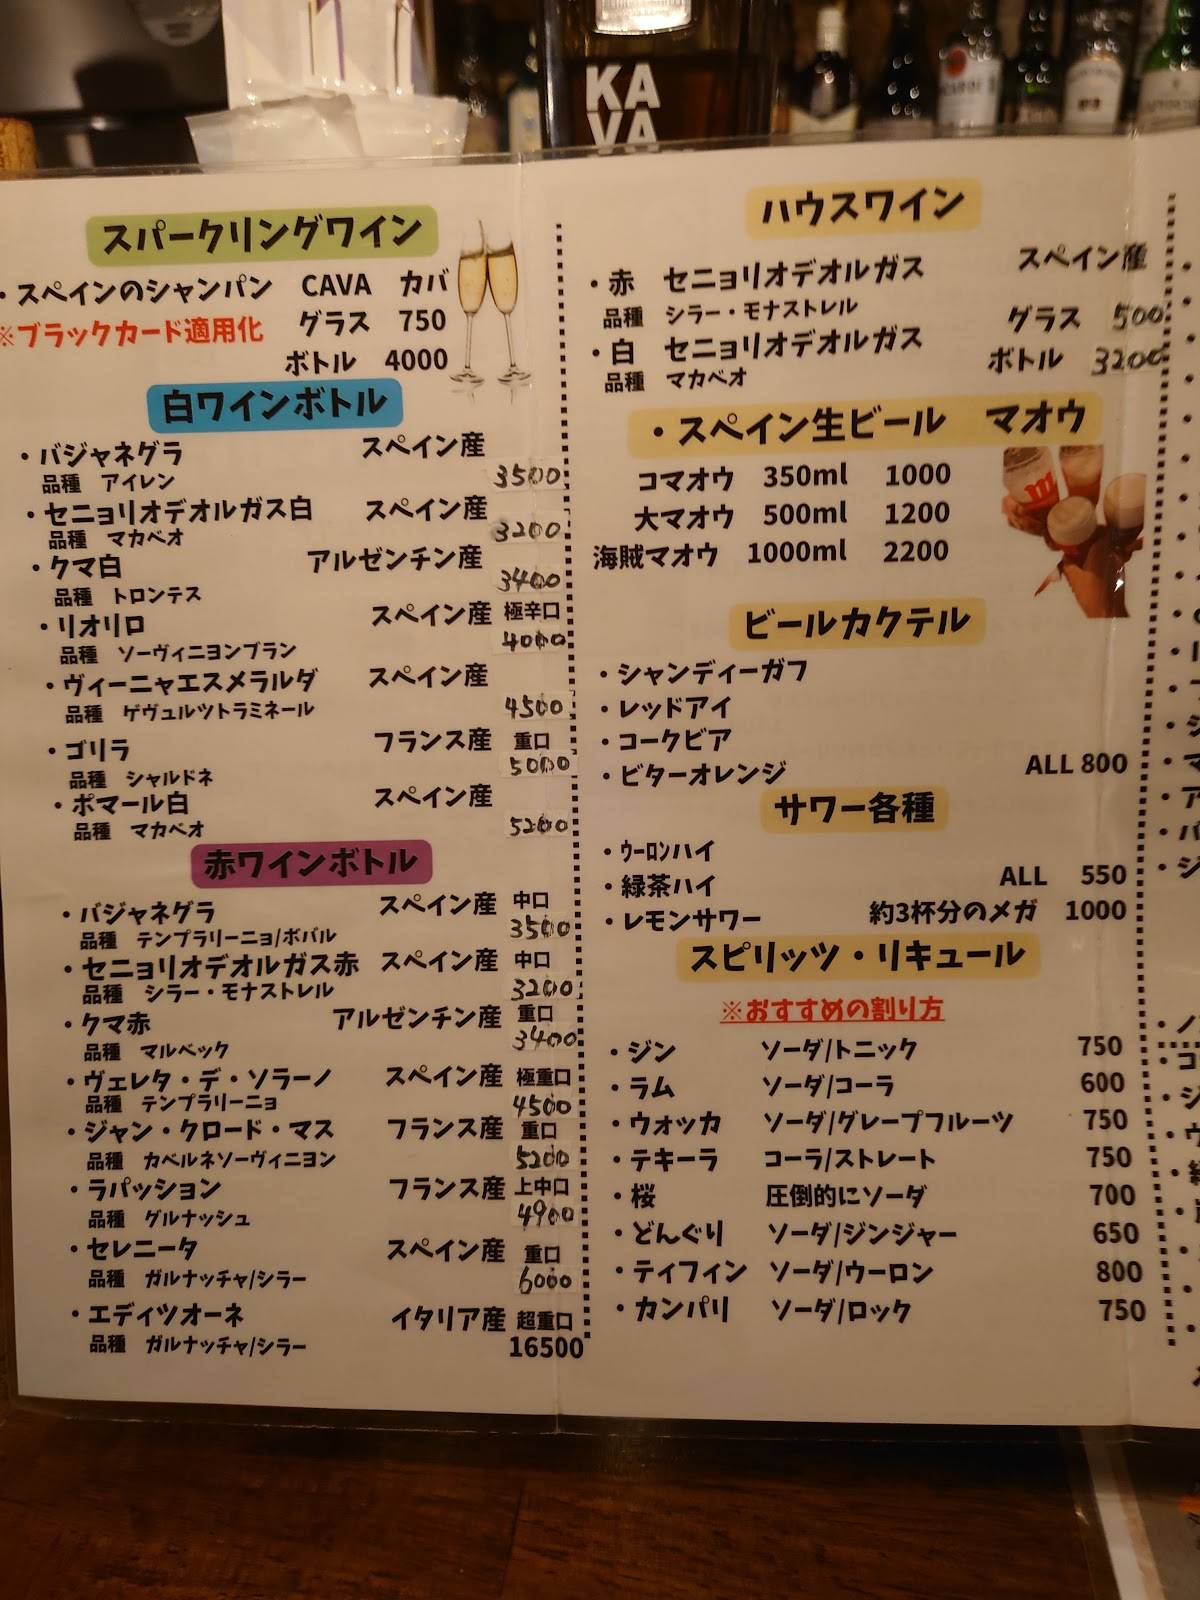 KA
VA
スパークリングワイン
・スペインのシャンパン CAVA カバ
※ブラックカード適用化 グラス 750
ボトル 4000
白ワインボトル
・バジャネグラ スペイン産
品種 アイレン 3500
・セニョリオデオルガス白 スペイン産
品種 マカベオ 3200
・クマ白 アルゼンチン産
品種 トロンテス 3400
・リオリロ スペイン産 極辛口
品種 ソーヴィニヨンブラン 4000
・ヴィーニャエスメラルダ スペイン産
品種 ゲヴュルツトラミネール 4500
・ゴリラ フランス産 重口
品種 シャルドネ 5000
・ポマール白 スペイン産
品種 マカベオ 5200
赤ワインボトル
・バジャネグラ スペイン産 中口
品種 テンプラリーニョ/ボバル 3500
・セニョリオデオルガス赤 スペイン産 中口
品種 シラー・モナストレル 3200
・クマ赤 アルゼンチン産 重口
品種 マルベック 3400
・ヴェレタ・デ・ソラーノ スペイン産 極重口
品種 テンプラリーニョ 4500
・ジャン・クロード・マス フランス産 重口
品種 カベルネソーヴィニヨン 5200
・ラパッション フランス産 上中口
品種 グルナッシュ 4900
・セレニータ スペイン産 重口
品種 ガルナッチャ/シラー 6000
・エディツオーネ イタリア産 超重口
品種 ガルナッチャ/シラー 16500
ハウスワイン
スペイン産
・赤 セニョリオデオルガス
品種 シラー・モナストレル グラス 500
・白 セニョリオデオルガス ボトル 3200
品種 マカベオ
・スペイン生ビール マオウ
コマオウ 350ml 1000
大マオウ 500ml 1200
海賊マオウ 1000ml 2200
ビールカクテル
・シャンディーガフ
・レッドアイ
・コークビア
・ビターオレンジ ALL 800
サワー各種
・ウーロンハイ
・緑茶ハイ ALL 550
・レモンサワー 約3杯分のメガ 1000
スピリッツ・リキュール
※おすすめの割り方
・ジン ソーダ/トニック 750
・ラム ソーダ/コーラ 600
・ウォッカ ソーダ/グレープフルーツ 750
・テキーラ コーラ/ストレート 750
・桜 圧倒的にソーダ 700
・どんぐり ソーダ/ジンジャー 650
・ティフィン ソーダ/ウーロン 800
・カンパリ ソーダ/ロック 750